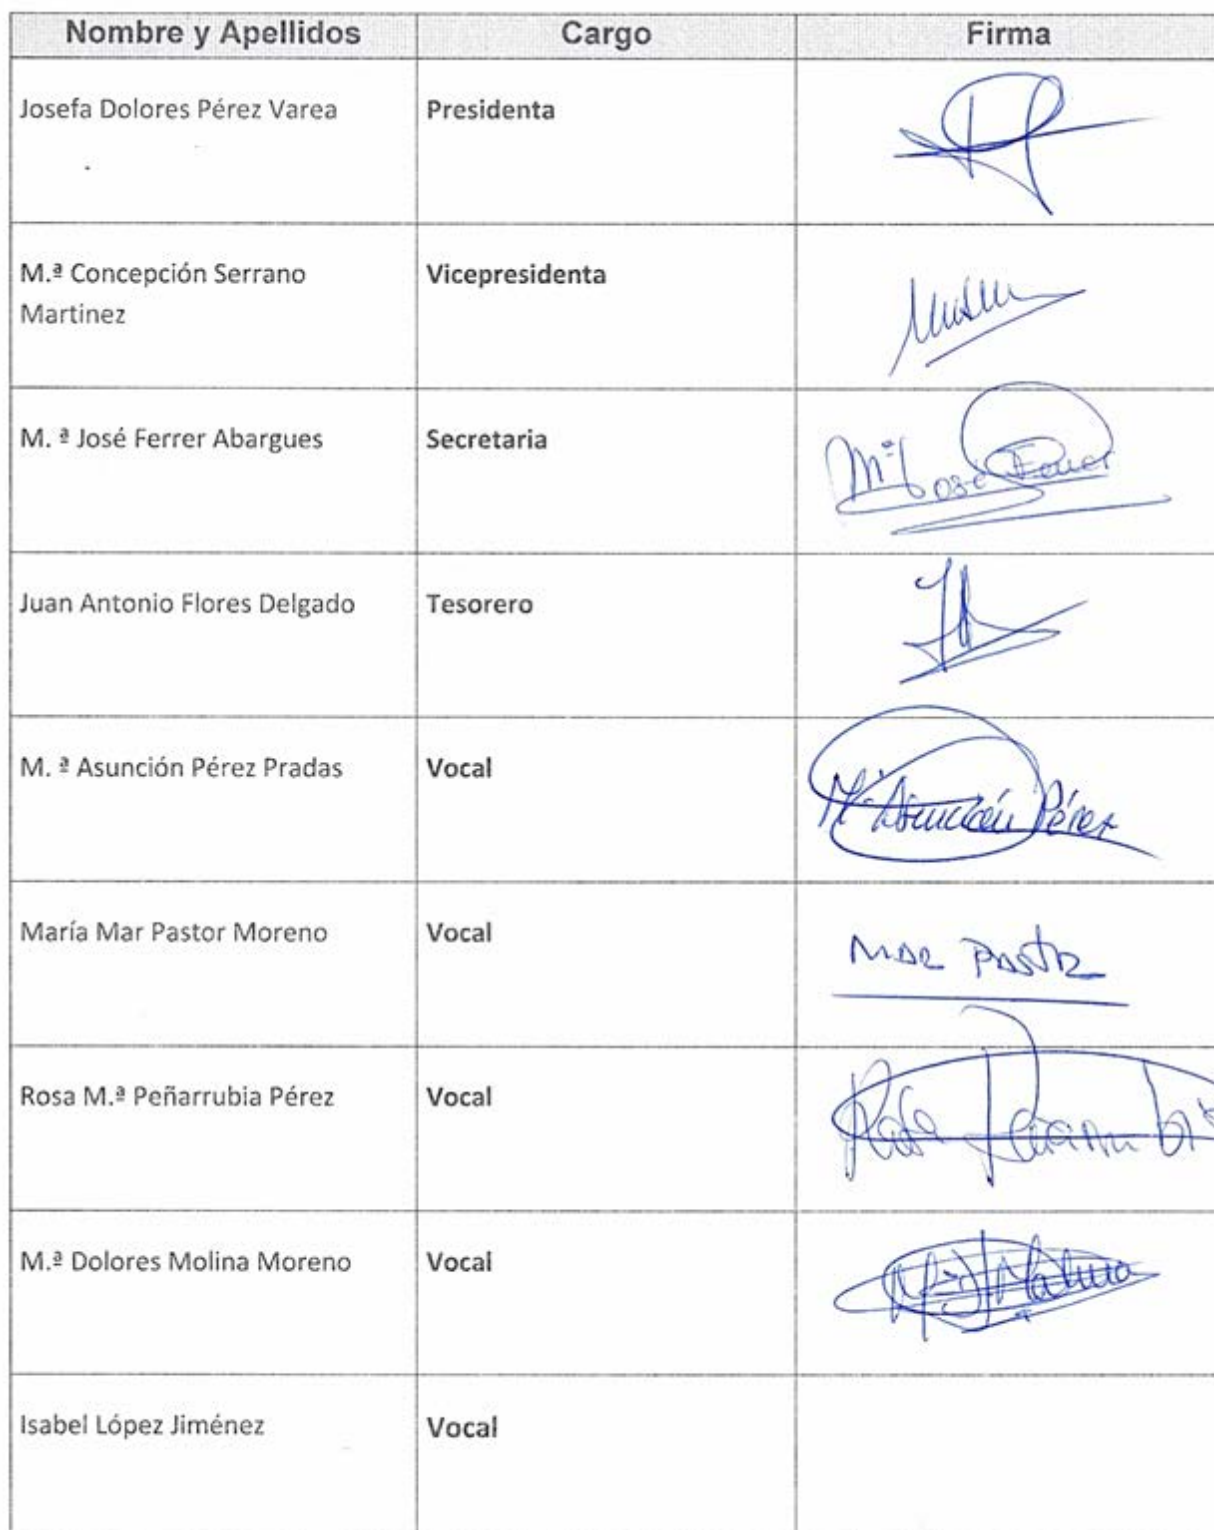 Nombre y Apellidos Cargo Firma
Josefa Dolores Pérez Varea Presidenta
M.ª Concepción Serrano Vicepresidenta
Martinez
M. ª José Ferrer Abargues Secretaria
Mª José Ferrer
Juan Antonio Flores Delgado Tesorero
M. ª Asunción Pérez Pradas Vocal
Mª Asunción Pérez
María Mar Pastor Moreno Vocal
MAR PASTOR
Rosa M.ª Peñarrubia Pérez Vocal
Rosa
M.ª Dolores Molina Moreno Vocal
Molina
Isabel López Jiménez Vocal